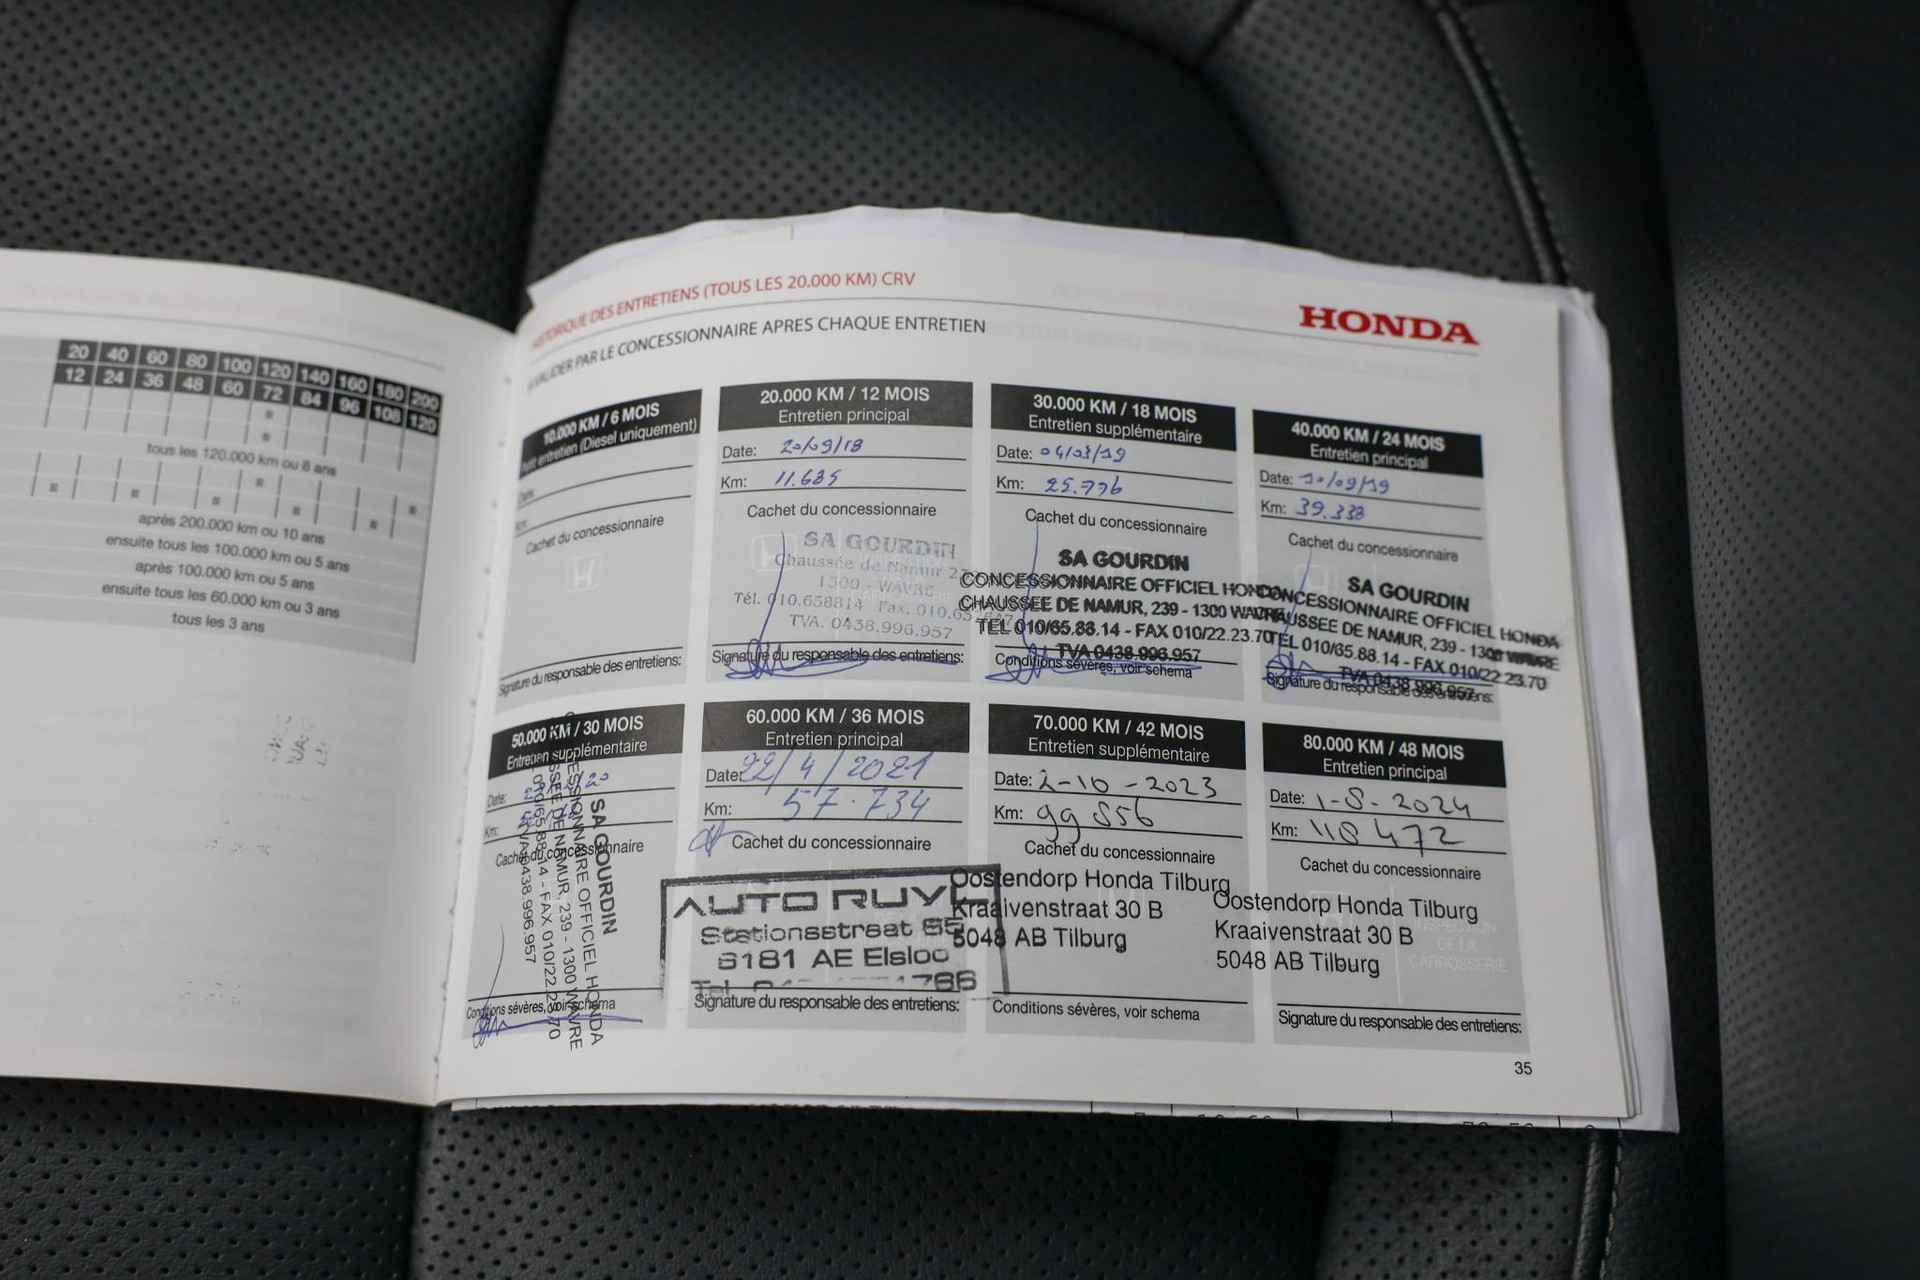 20 40 60 80 100 120 140 160 180 200
12 24 36 48 60 72 84 96 108 120
tous les 120.000 km ou 8 ans
après 200.000 km ou 10 ans
ensuite tous les 100.000 km ou 5 ans
après 100.000 km ou 5 ans
ensuite tous les 60.000 km ou 3 ans
tous les 3 ans
HISTORIQUE DES ENTRETIENS (TOUS LES 20.000 KM) CRV
HONDA
A VALIDER PAR LE CONCESSIONNAIRE APRES CHAQUE ENTRETIEN
10.000 KM / 6 MOIS
Petit entretien (Diesel uniquement)
Date:
Km:
Cachet du concessionnaire
Signature du responsable des entretiens:
20.000 KM / 12 MOIS
Entretien principal
Date: 20/09/18
Km: 11.685
Cachet du concessionnaire
SA GOURDIN
Chaussée de Namur
1300 - WAVRE
Tél. 010.658814 Fax. 010.65
TVA. 0438.996.957
Signature du responsable des entretiens:
30.000 KM / 18 MOIS
Entretien supplémentaire
Date: 04/03/19
Km: 25.776
Cachet du concessionnaire
SA GOURDIN
CONCESSIONNAIRE OFFICIEL HONDA
CHAUSSEE DE NAMUR, 239 - 1300 WAVRE
TEL 010/65.88.14 - FAX 010/22.23.70
TVA 0438.996.957
Conditions sévères, voir schema
40.000 KM / 24 MOIS
Entretien principal
Date: 10/09/19
Km: 39.338
Cachet du concessionnaire
SA GOURDIN
CONCESSIONNAIRE OFFICIEL HONDA
CHAUSSEE DE NAMUR, 239 - 1300 WAVRE
TEL 010/65.88.14 - FAX 010/22.23.70
TVA 0438.996.957
Signature du responsable des entretiens:
50.000 KM / 30 MOIS
Entretien supplémentaire
Date:
Km:
Cachet du concessionnaire
SA GOURDIN
CONCESSIONNAIRE OFFICIEL HONDA
CHAUSSEE DE NAMUR, 239 - 1300 WAVRE
TEL 010/65.88.14 - FAX 010/22.23.70
TVA 0438.996.957
Conditions sévères, voir schema
60.000 KM / 36 MOIS
Entretien principal
Date: 22/4/2021
Km: 57.734
Cachet du concessionnaire
AUTO RUYL
Stationsstraat
6181 AE Elsloo
Signature du responsable des entretiens:
70.000 KM / 42 MOIS
Entretien supplémentaire
Date: 2-10-2023
Km: 99 856
Cachet du concessionnaire
Oostendorp Honda Tilburg
Kraaivenstraat 30 B
5048 AB Tilburg
Conditions sévères, voir schema
80.000 KM / 48 MOIS
Entretien principal
Date: 1-8-2024
Km: 118 472
Cachet du concessionnaire
Oostendorp Honda Tilburg
Kraaivenstraat 30 B
5048 AB Tilburg
INSPECTION
DE LA
CARROSSERIE
Signature du responsable des entretiens:
35